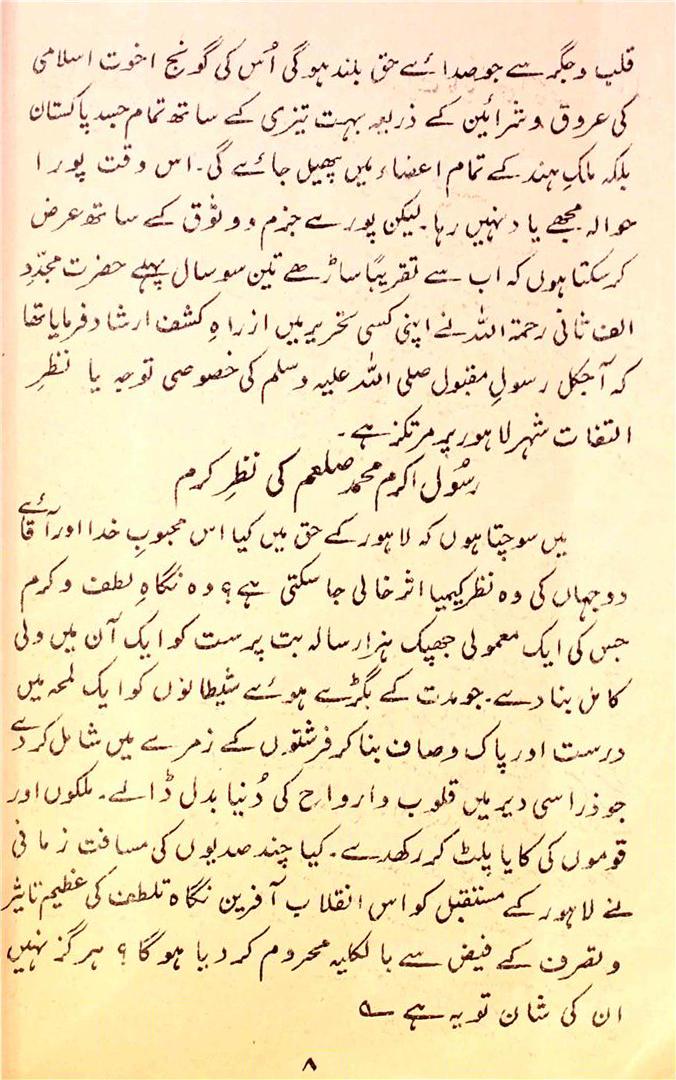 قلب و جگر سے جو صدائے حق بلند ہوگی اُس کی گونج اخوت اسلامی
کی عروق و شرائین کے ذریعہ بہت تیزی کے ساتھ تمام جسد پاکستان
بلکہ ملکِ ہند کے تمام اعضاء میں پھیل جائے گی۔ اس وقت پورا
حوالہ مجھے یاد نہیں رہا۔ لیکن پورے جزم و وثوق کے ساتھ عرض
کر سکتا ہوں کہ اب سے تقریباً ساڑھے تین سو سال پہلے حضرت مجدّدِ
الف ثانی رحمۃ اللہ نے اپنی کسی تحریر میں از راہِ کشف ارشاد فرمایا تھا
کہ آجکل رسولِ مقبول صلی اللہ علیہ وسلم کی خصوصی توجہ یا نظرِ
التفات شہر لاہور پر مرتکز ہے۔
رسُول اکرم محمد صلعم کی نظرِ کرم
میں سوچتا ہوں کہ لاہور کے حق میں کیا اس محبوبِ خدا اور آقائے
دوجہاں کی وہ نظرِ کیمیا اثر خالی جا سکتی ہے؟ وہ نگاہِ لطف و کرم
جس کی ایک معمولی جھپک ہزار سالہ بت پرست کو ایک آن میں ولی
کامل بنا دے۔ جو مدت کے بگڑے ہوئے شیطانوں کو ایک لمحہ میں
درست اور پاک و صاف بنا کر فرشتوں کے زمرے میں شامل کر دے
جو ذرا سی دیر میں قلوب و ارواح کی دُنیا بدل ڈالے۔ ملکوں اور
قوموں کی کایا پلٹ کر رکھدے۔ کیا چند صدیوں کی مسافت زمانی
نے لاہور کے مستقبل کو اس انقلاب آفرین نگاہ تلطف کی عظیم تاثیر
و تصرف کے فیض سے بالکلیہ محروم کر دیا ہوگا؟ ہرگز نہیں
ان کی شان تو یہ ہے ؎
۸